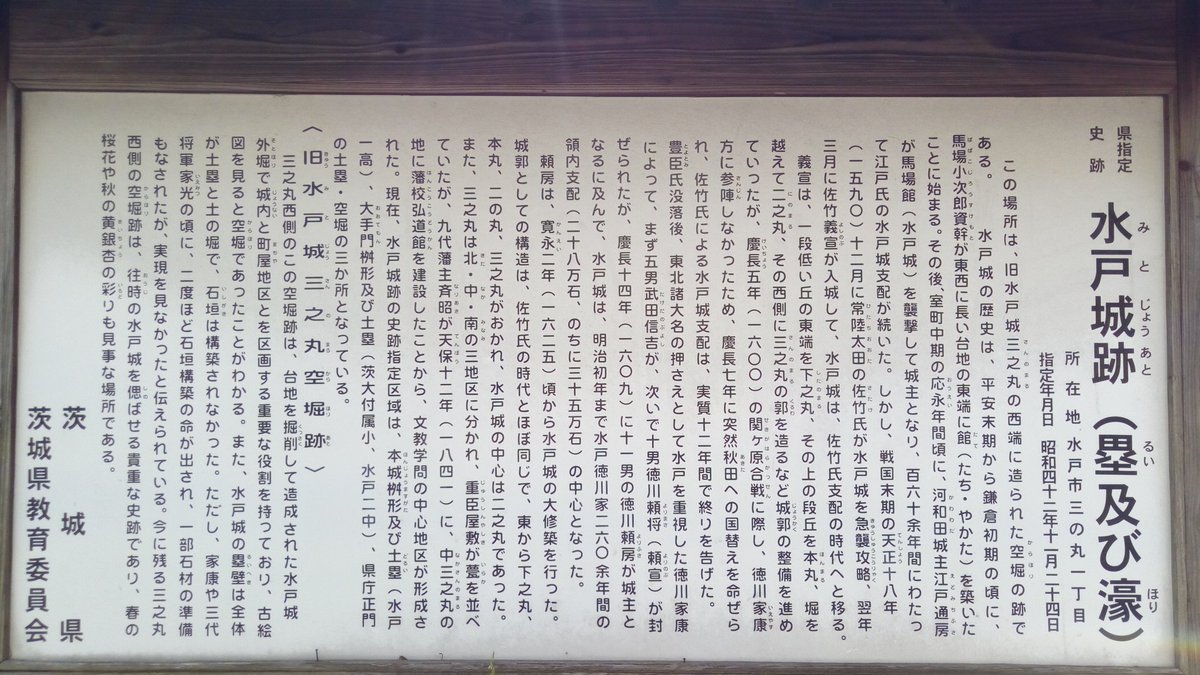 県指定
史跡
水戸城跡（塁及び濠）
所在地 水戸市三の丸一丁目
指定年月日 昭和四十二年十一月二十四日
この場所は、旧水戸城三之丸の西端に造られた空堀の跡で
ある。 水戸城の歴史は、平安末期から鎌倉初期の頃に、
馬場小次郎資幹が東西に長い台地の東端に館（たち・やかた）を築いた
ことに始まる。その後、室町中期の応永年間頃に、河和田城主江戸通房
が馬場館（水戸城）を襲撃して城主となり、百六十余年間にわたっ
て江戸氏の水戸城支配が続いた。しかし、戦国末期の天正十八年
（一五九〇）十二月に常陸太田の佐竹氏が水戸城を急襲攻略、翌年
三月に佐竹義宣が入城して、水戸城は、佐竹氏支配の時代へと移る。
義宣は、一段低い丘の東端を下之丸、その上の段丘を本丸、堀を
越えて二之丸、その西側に三之丸の郭を造るなど城郭の整備を進め
ていったが、慶長五年（一六〇〇）の関ヶ原合戦に際し、徳川家康
方に参陣しなかったため、慶長七年に突然秋田への国替えを命ぜら
れ、佐竹氏による水戸城支配は、実質十二年間で終りを告げた。
豊臣氏没落後、東北諸大名の押さえとして水戸を重視した徳川家康
によって、まず五男武田信吉が、次いで十男徳川頼将（頼宣）が封
ぜられたが、慶長十四年（一六〇九）に十一男の徳川頼房が城主と
なるに及んで、水戸城は、明治初年まで水戸徳川家二六〇余年間の
領内支配（二十八万石、のちに三十五万石）の中心となった。
頼房は、寛永二年（一六二五）頃から水戸城の大修築を行った。
城郭としての構造は、佐竹氏の時代とほぼ同じで、東から下之丸、
本丸、二の丸、三之丸がおかれ、水戸城の中心は二之丸であった。
また、三之丸は北・中・南の三地区に分かれ、重臣屋敷が甍を並べ
ていたが、九代藩主斉昭が天保十二年（一八四一）に、中三之丸の
地に藩校弘道館を建設したことから、文教学問の中心地区が形成さ
れた。現在、水戸城跡の史跡指定区域は、本城桝形及び土塁（水戸
一高）、大手門桝形及び土塁（茨大付属小、水戸二中）、県庁正門
の土塁・空堀の三か所となっている。
〈旧水戸城三之丸空堀跡〉
三之丸西側のこの空堀跡は、台地を掘削して造成された水戸城
外堀で城内と町屋地区とを区画する重要な役割を持っており、古絵
図を見ると空堀であったことがわかる。また、水戸城の塁壁は全体
が土塁と土の堀で、石垣は構築されなかった。ただし、家康や三代
将軍家光の頃に、二度ほど石垣構築の命が出され、一部石材の準備
もなされたが、実現を見なかったと伝えられている。今に残る三之丸
西側の空堀跡は、往時の水戸城を偲ばせる貴重な史跡であり、春の
桜花や秋の黄銀杏の彩りも見事な場所である。
茨城県
茨城県教育委員会